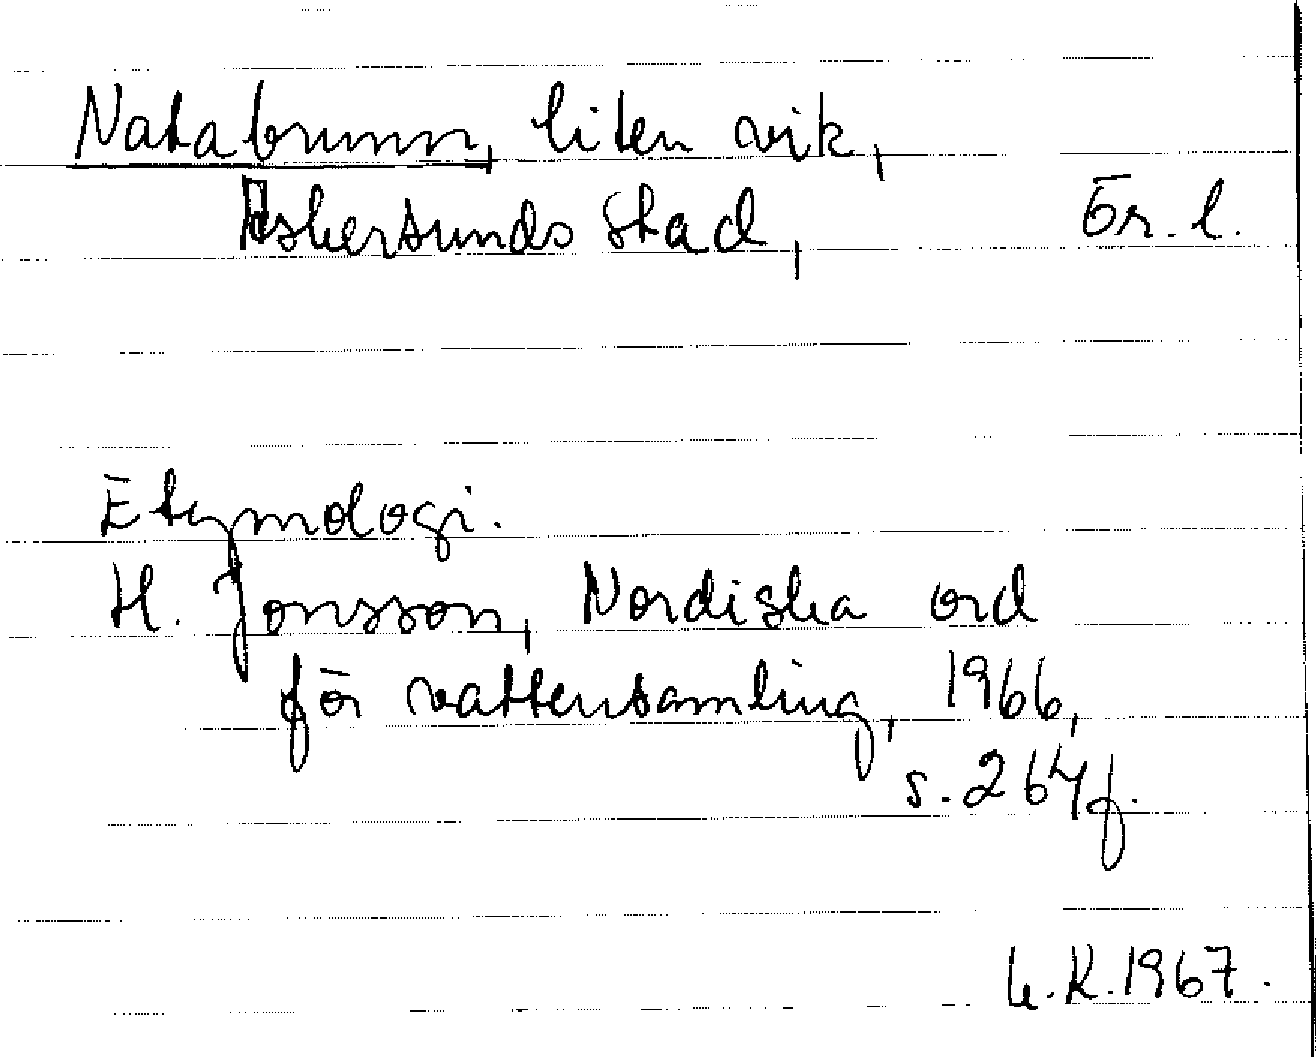 Natabrunn, liten vik,
Askersunds stad, Ör. l.
Etymologi.
H. Jonsson, Nordiska ord
för vattensamling, 1966,
s. 264f.
K. 1967.